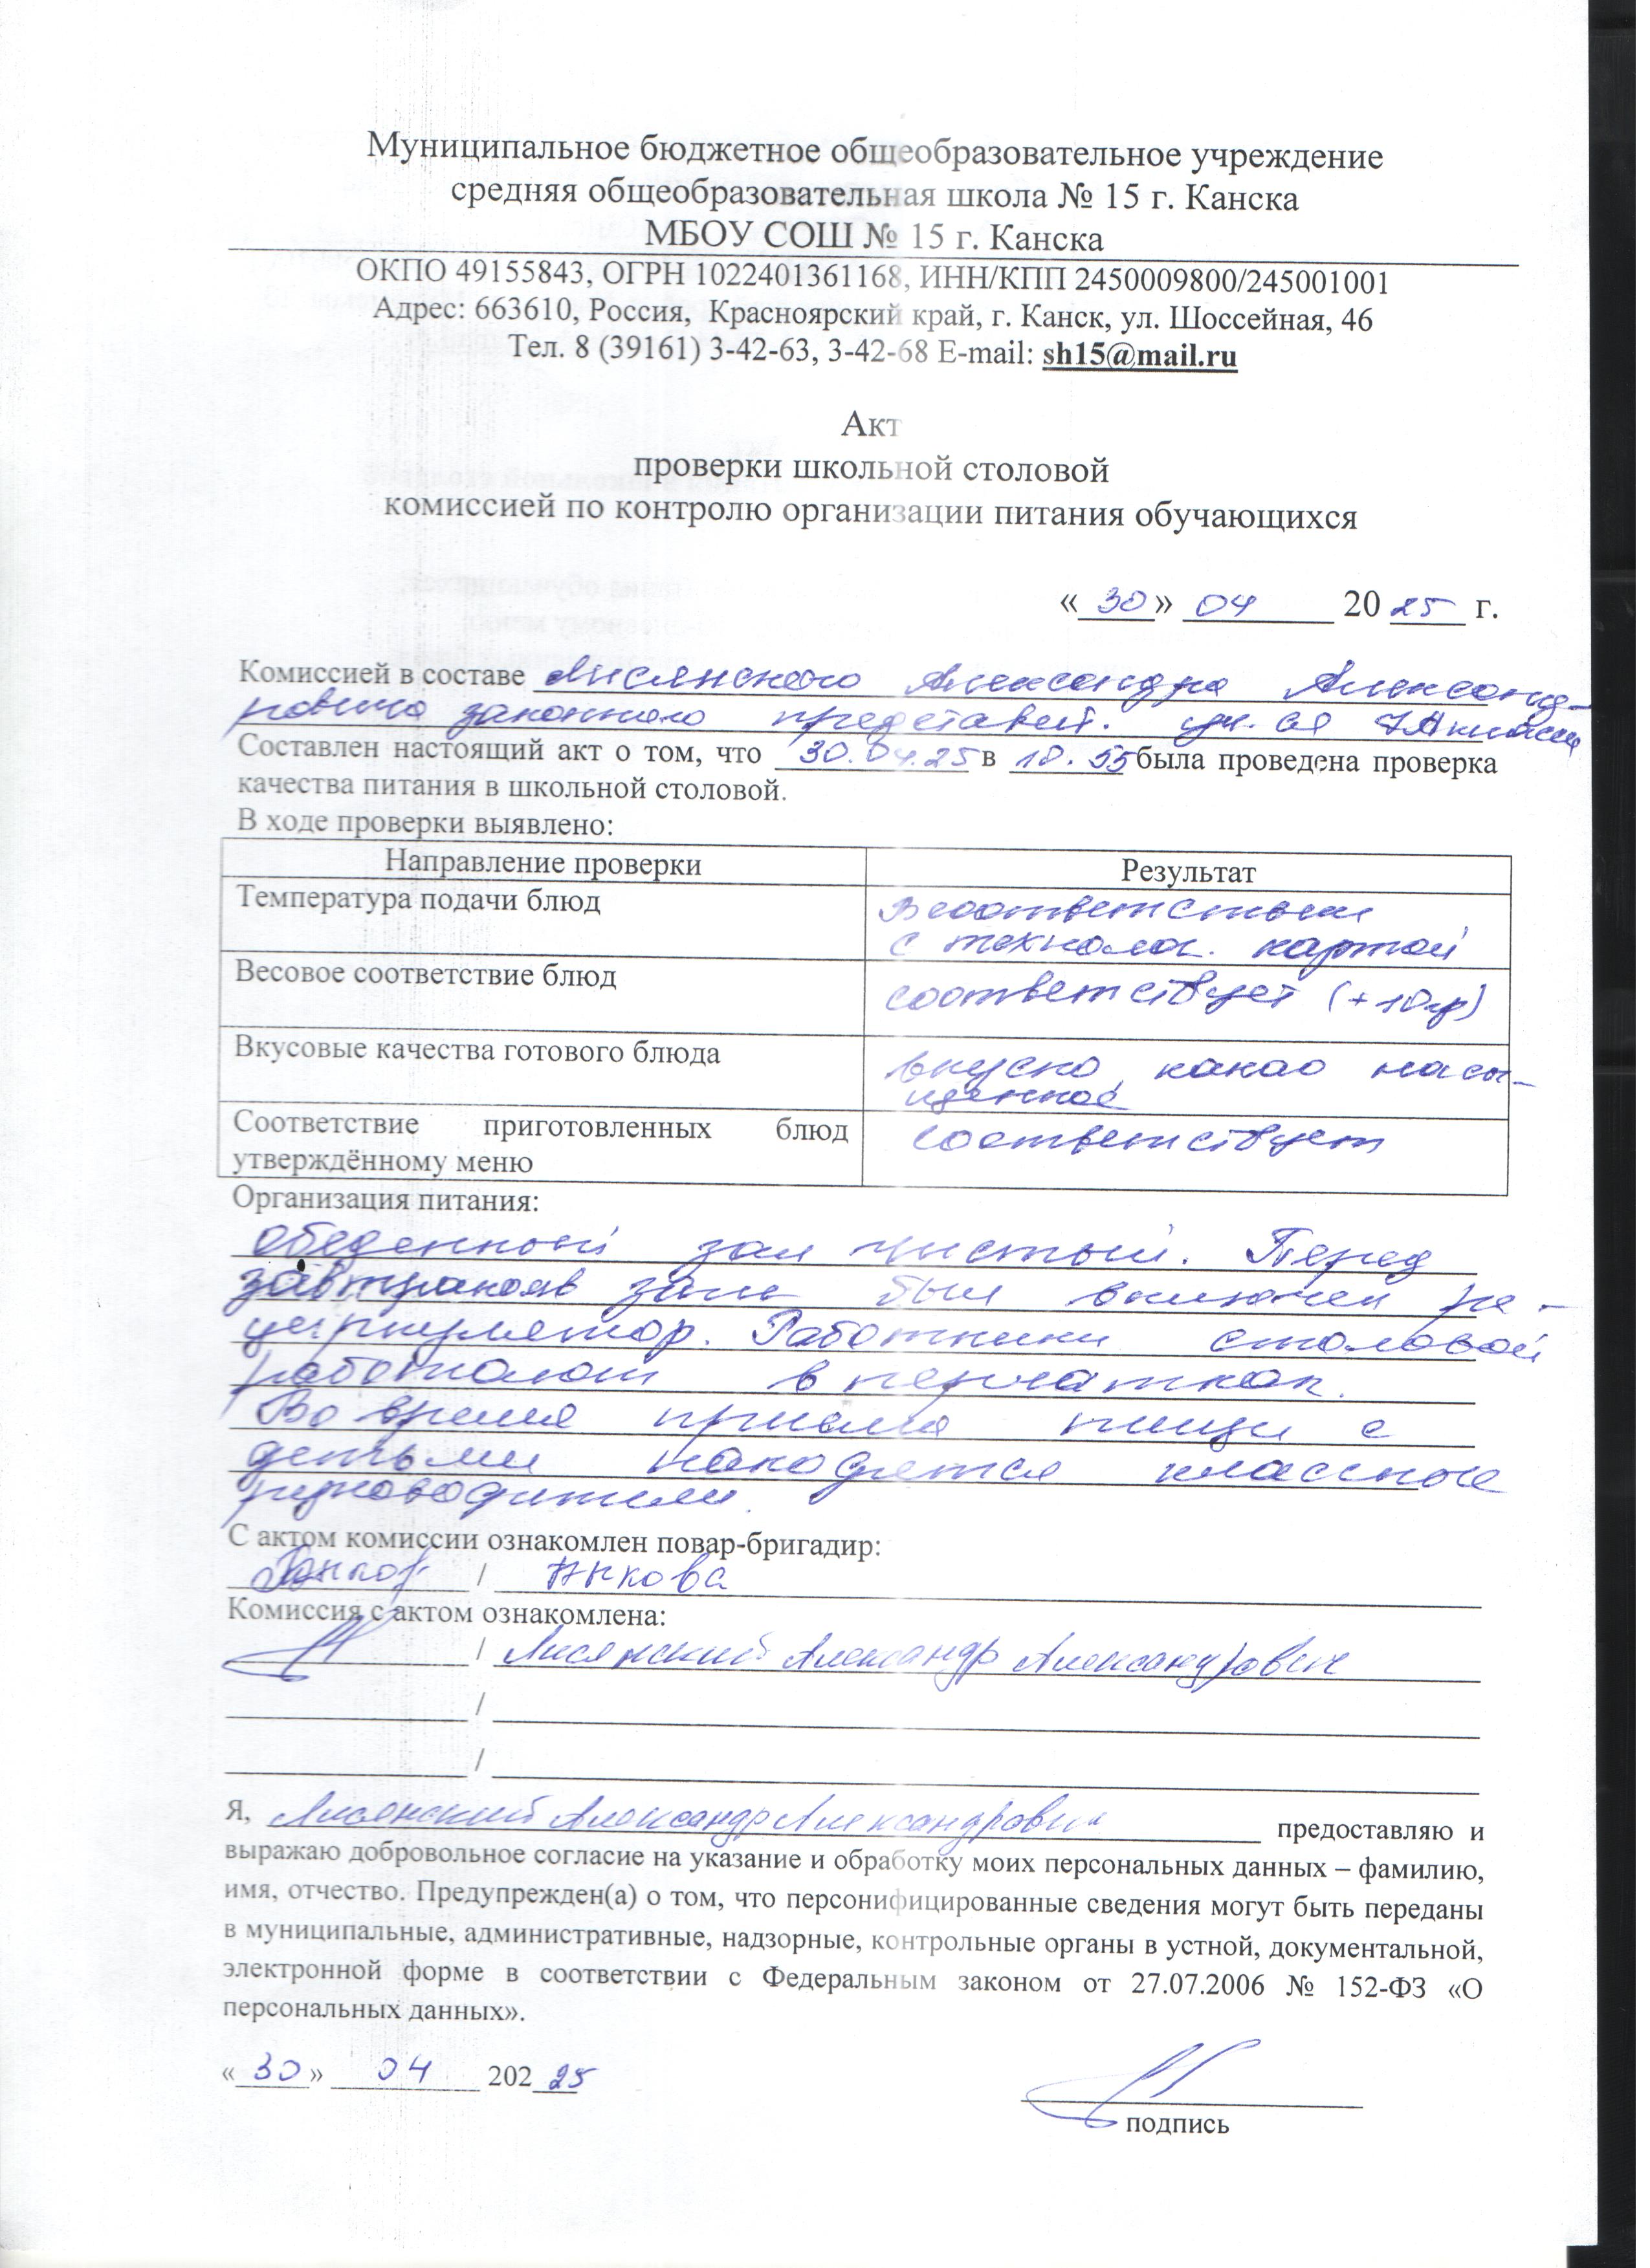 Муниципальное бюджетное общеобразовательное учреждение
средняя общеобразовательная школа № 15 г. Канска
МБОУ СОШ № 15 г. Канска
ОКПО 49155843, ОГРН 1022401361168, ИНН/КПП 2450009800/245001001
Адрес: 663610, Россия, Красноярский край, г. Канск, ул. Шоссейная, 46
Тел. 8 (39161) 3-42-63, 3-42-68 E-mail: sh15@mail.ru
Акт
проверки школьной столовой
комиссией по контролю организации питания обучающихся
«30» 04 2025 г.
Комиссией в составе Лисянского Александра Александ-
ровича законного представит. уч. ся
Составлен настоящий акт о том, что 30.04.25 в 10.55 была проведена проверка
качества питания в школьной столовой.
В ходе проверки выявлено:
Направление проверки Результат
Температура подачи блюд В соответствии
с технолог. картой
Весовое соответствие блюд соответствует (+10гр)
Вкусовые качества готового блюда вкусно, какао насы-
щенное
Соответствие приготовленных блюд соответствует
утверждённому меню
Организация питания:
Обеденный зал чистый. Перед
завтраком в зале был включен ре-
циркулятор. Работники столовой
работают в перчатках.
Во время приема пищи с
детьми находятся классные
руководители.
С актом комиссии ознакомлен повар-бригадир:
/
Комиссия с актом ознакомлена:
/ Лисянский Александр Александрович
/
/
Я, Лисянский Александр Александрович предоставляю и
выражаю добровольное согласие на указание и обработку моих персональных данных – фамилию,
имя, отчество. Предупрежден(а) о том, что персонифицированные сведения могут быть переданы
в муниципальные, административные, надзорные, контрольные органы в устной, документальной,
электронной форме в соответствии с Федеральным законом от 27.07.2006 № 152-ФЗ «О
персональных данных».
«30» 04 20225
подпись